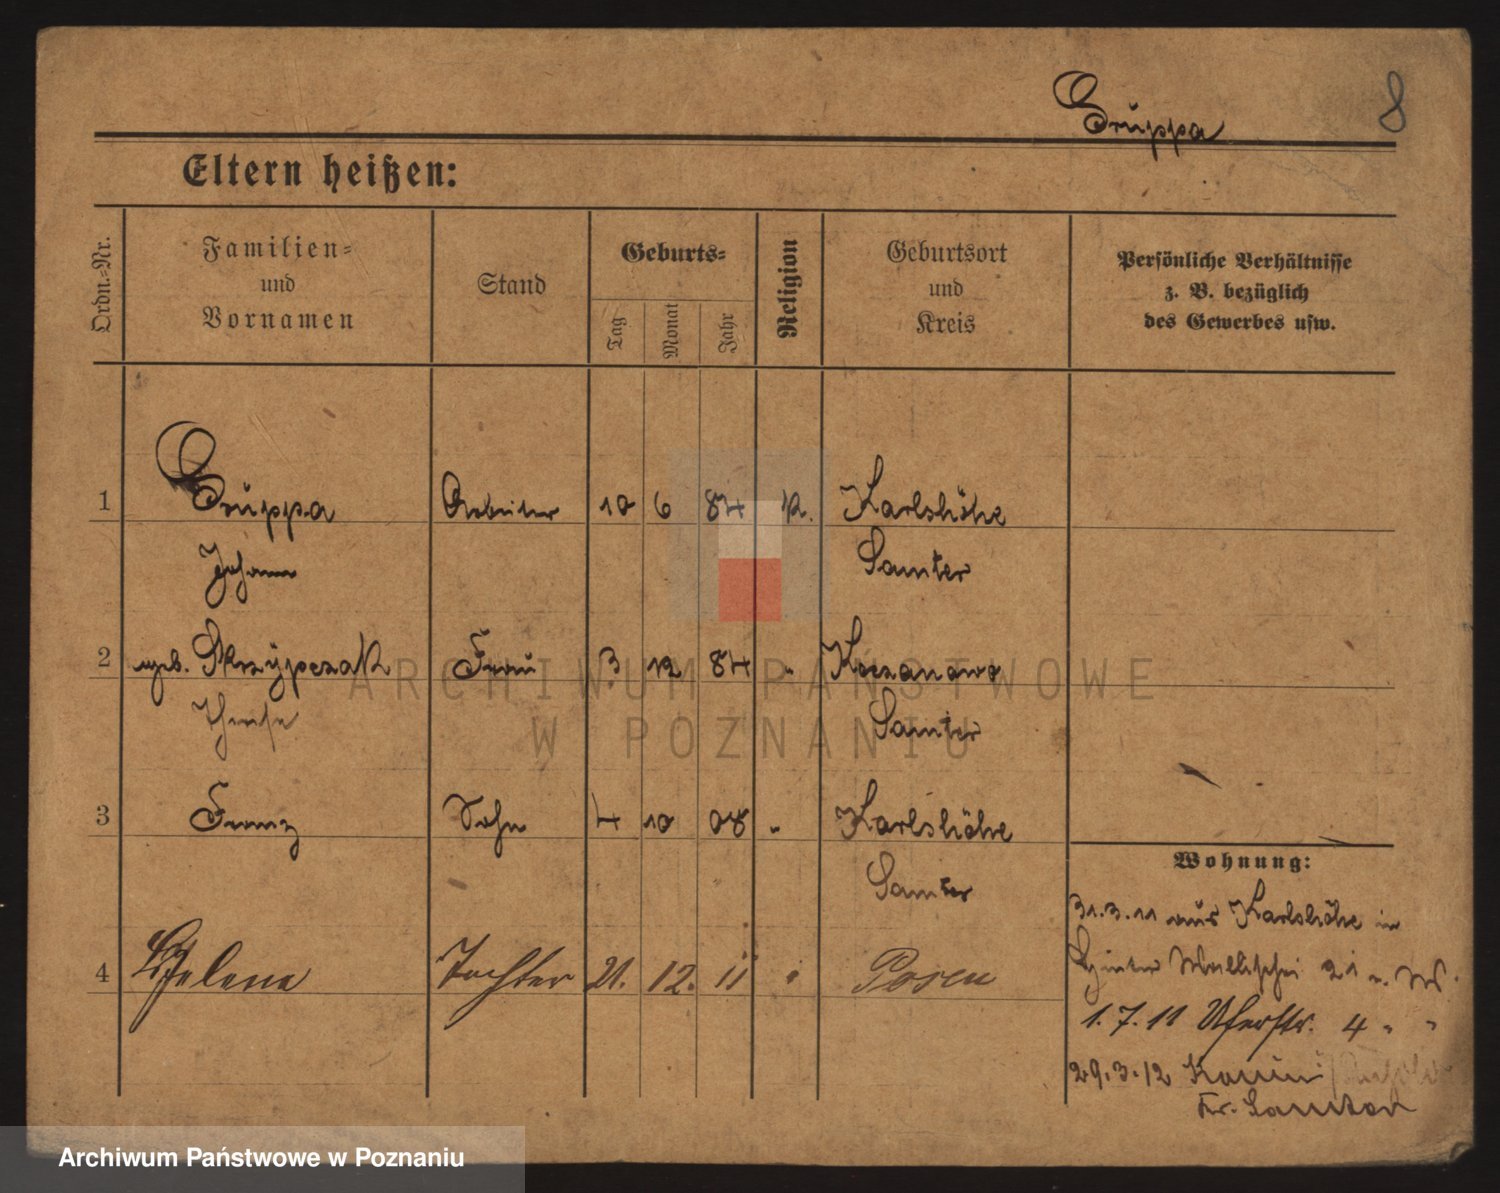 Gruppa
8
Eltern heißen:
Ordn.-Nr.
Familien- und Vornamen
Stand
Geburts-
Tag
Monat
Jahr
Religion
Geburtsort und Kreis
Persönliche Verhältnisse
z. B. bezüglich
des Gewerbes usw.
1 Gruppa Arbeiter 10 6 84 k. Karlshöhe
Johann Samter
2 geb. Skrzypczak Frau 3 12 84 " Koczanowo
Therese Samter
3 Franz Sohn 4 10 08 " Karlshöhe
Samter
4 Helena Tochter 21. 12. 11 " Posen
Wohnung:
31.3.11 aus Karlshöhe in
Hinter Wallischei 21 b. W.
1.7.11 Uferstr. 4 " "
29.3.12
Kr. Samter
ARCHIWUM PAŃSTWOWE
W POZNANIU
Archiwum Państwowe w Poznaniu